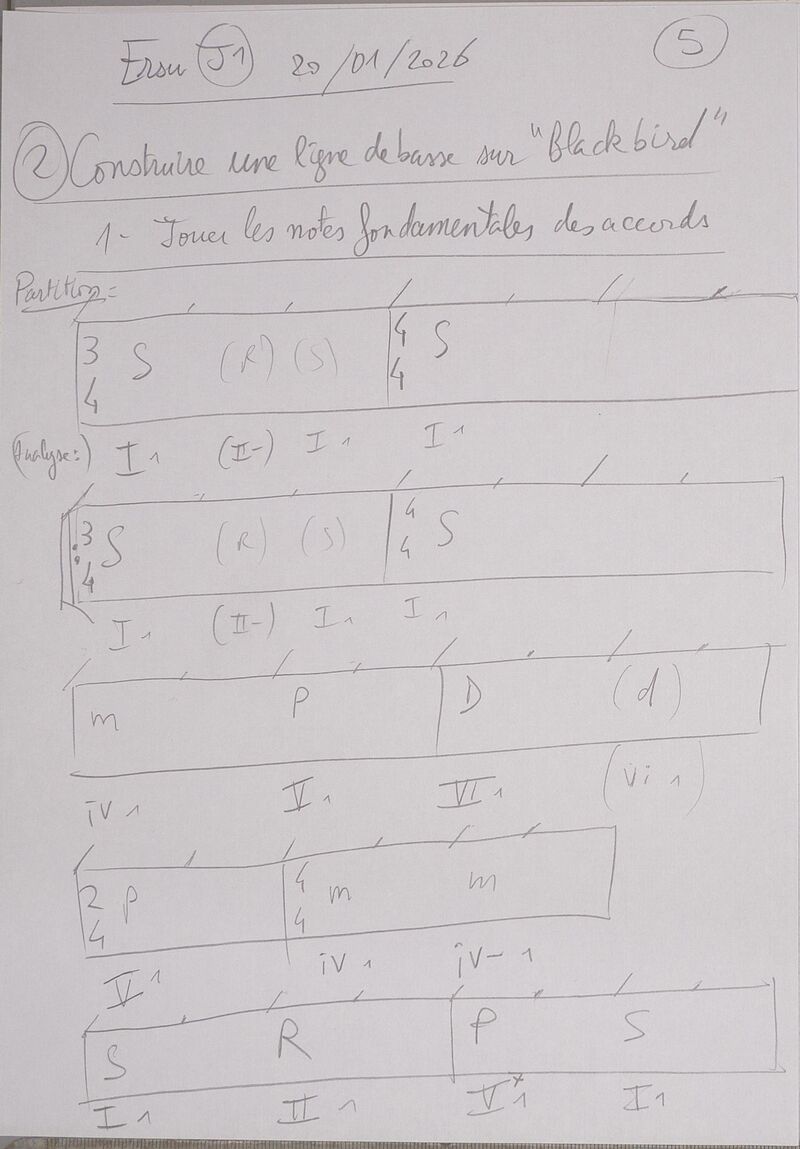 Ersu J1 20/01/2026 5
2 Construire une ligne de basse sur "Blackbird"
1- Jouer les notes fondamentales des accords
Partition:
3/4 S (R) (S) 4/4 S
(Analyse:) I1 (II-) I1 I1
3/4 S (R) (S) 4/4 S
I1 (II-) I1 I1
m P D (d)
iv1 V1 VI1 (vi1)
2/4 P 4/4 m m
V1 iv1 iv-1
S R P S
I1 II1 Vx1 I1